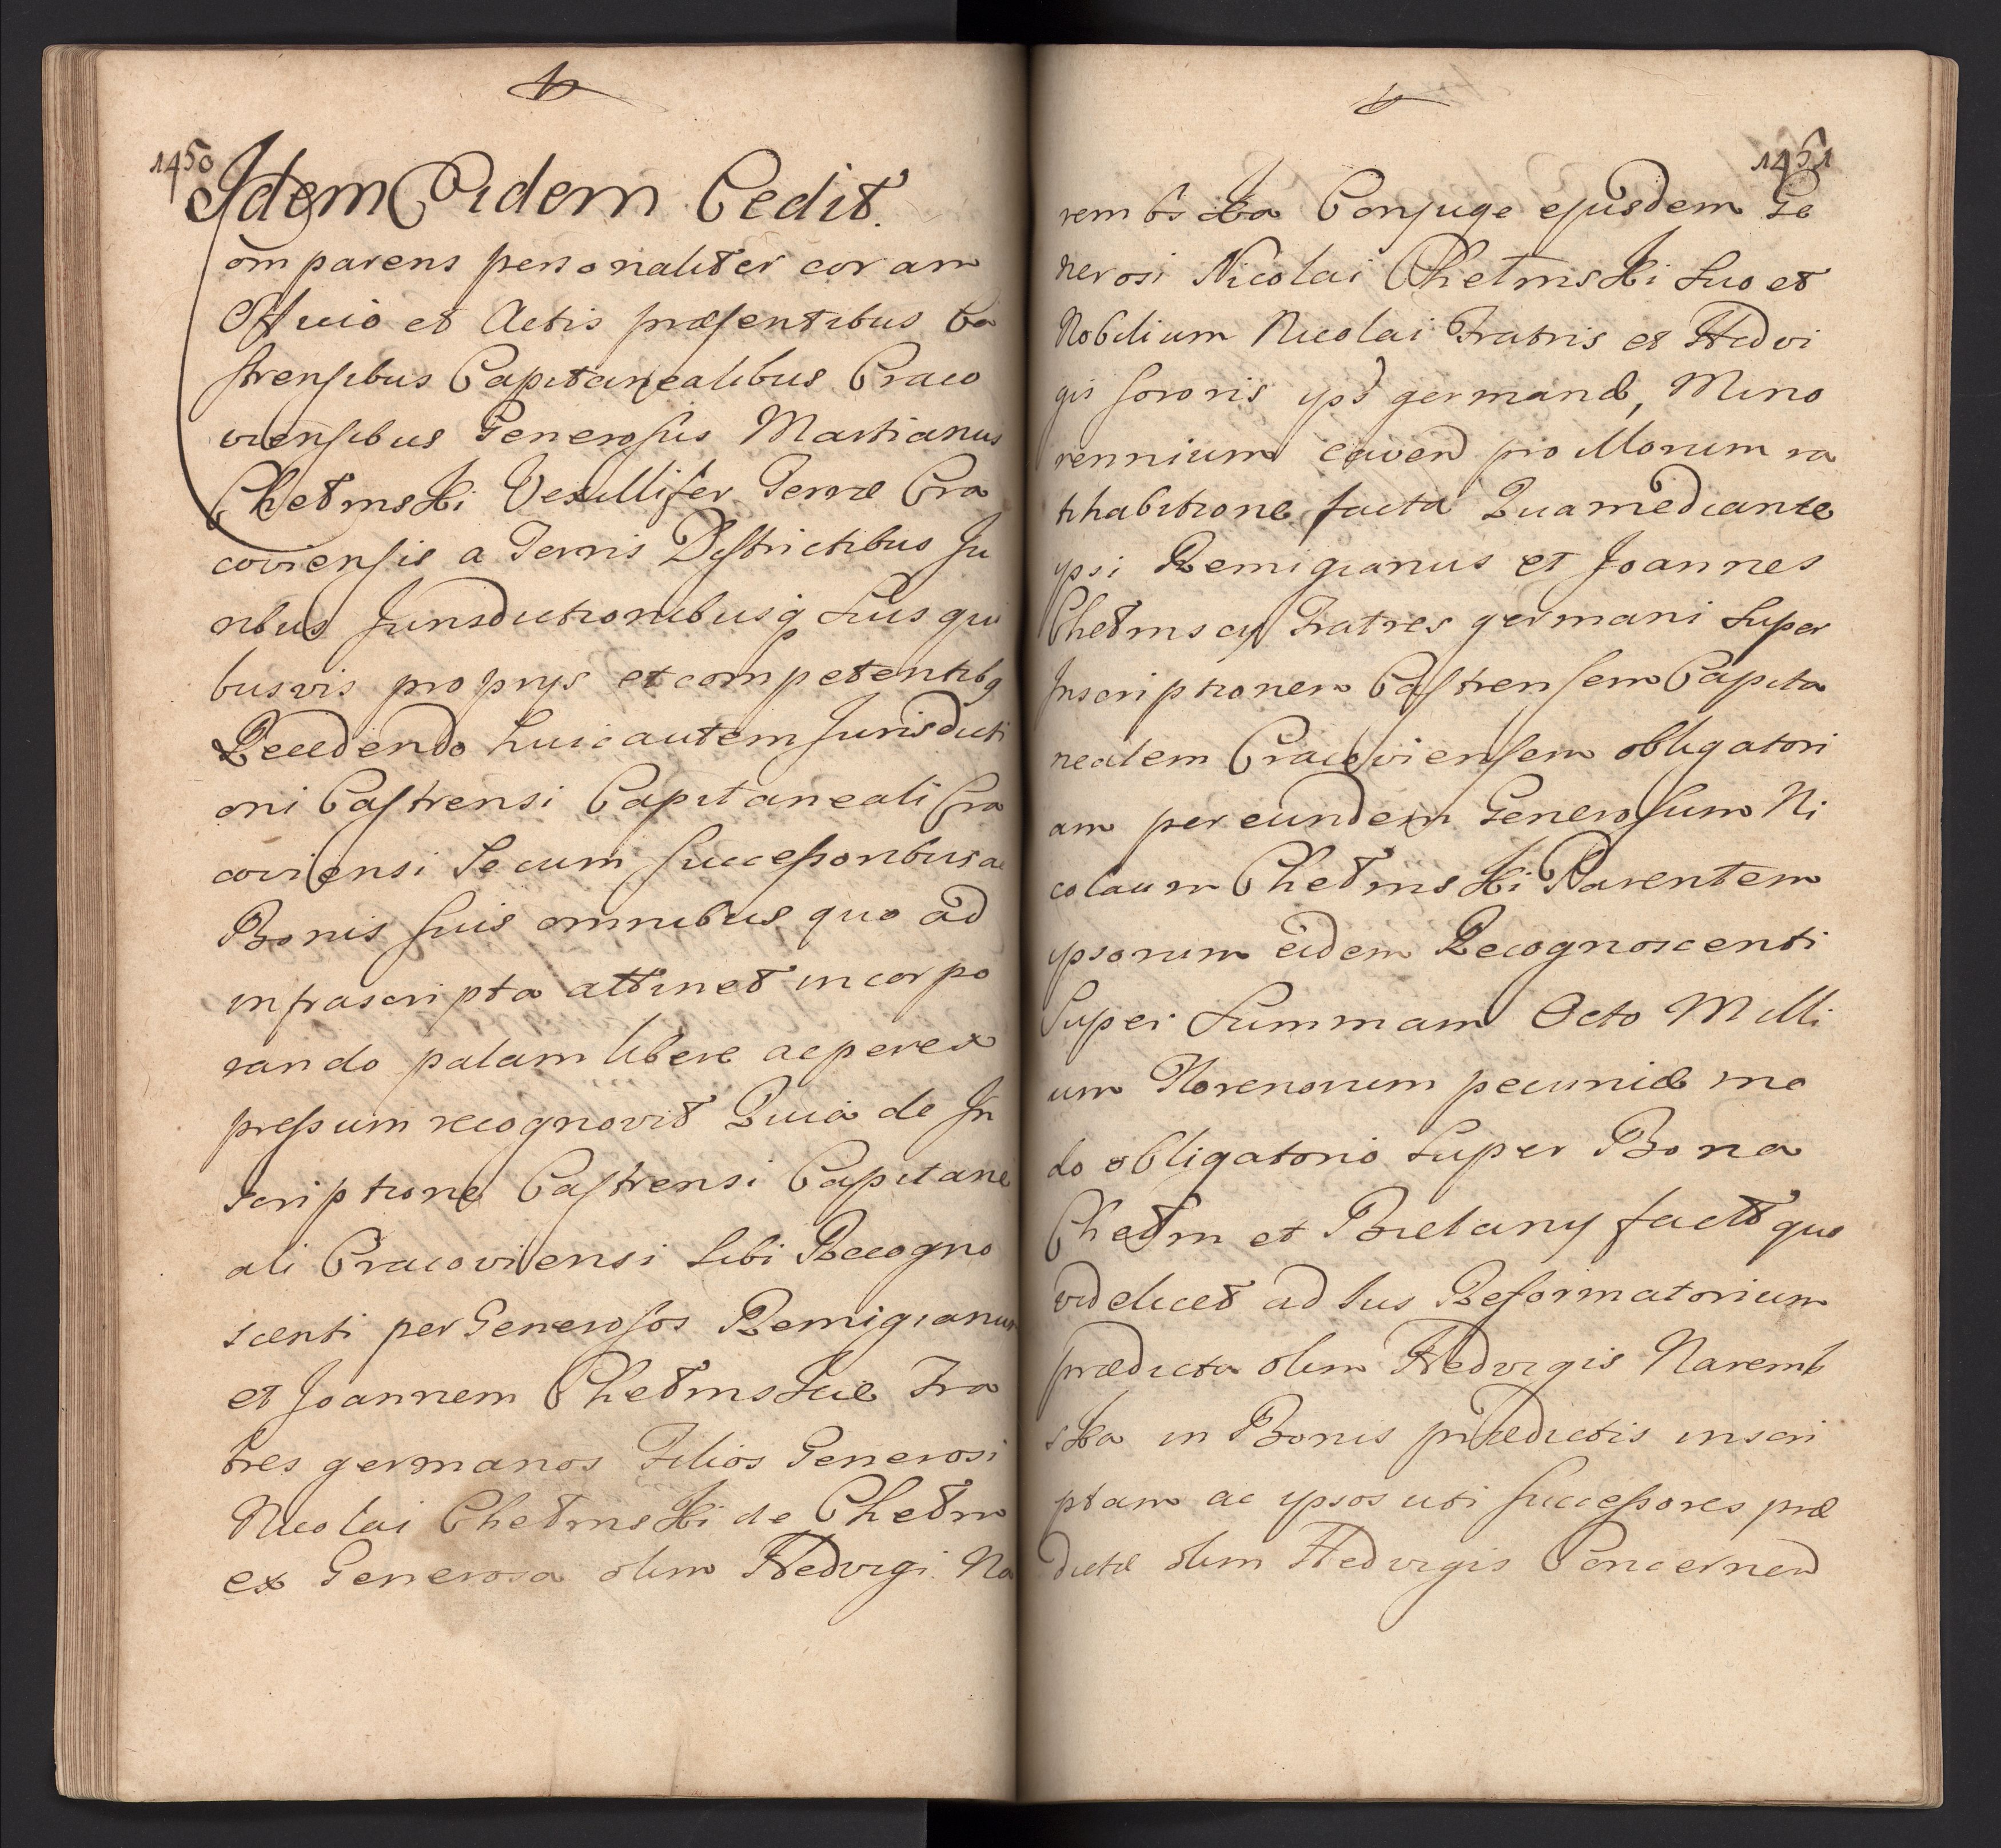 1450
Idem Eidem Cedit.
Comparens personaliter coram
Officio et Actis præsentibus Ca
strensibus Capitanealibus Craco
viensibus Generosus Martianus
Chełmski Vexillifer Terræ Cra
coviensis a Terris Districtibus Ju
ribus Jurisdictionibusq suis qui
busvis propryjs et competentibq
Recedendo huic autem Jurisdicti
oni Castrensi Capitaneali Cra
coviensi Se cum successoribus ac
Bonis suis omnibus quo ad
infrascripta attinet incorpo
rando palam libere ac per ex
pressum recognovit Quia de In
scriptione Castrensi Capitane
ali Cracoviensi Sibi Recogno
scenti per Generosos Remigianum
et Joannem Chełmskie Fra
tres germanos Filios Generosi
Nicolai Chełmski de Chełm
ex Generosa olim Hedvigi Na
1451
rembska Conjuge ejusdem Ge
nerosi Nicolai Chełmski Suo et
Nobilium Nicolai Fratris et Hedvi
gis sororis ypd germanæ, Mino
rennium cavend pro Illorum ra
tihabitione facta Qua mediante
ypsi Remigianus et Joannes
Chełmscy Fratres germani Super
Inscriptionem Castrensem Capita
nealem Cracoviensem obligatori
am per eundem Generosum Ni
colaum Chełmski Parentem
ypsorum eidem Recognoscenti
Super Summam Octo Milli
um Florenorum pecuniæ mo
do obligatorio Super Bona
Chełm et Bielany factt quo
videlicet ad Jus Reformatorium
prædicta olim Hedvigis Naremb
ska in Bonis prædictis inscri
ptam ac ypsos uti successores præ
dictæ olim Hedvigis Concernen